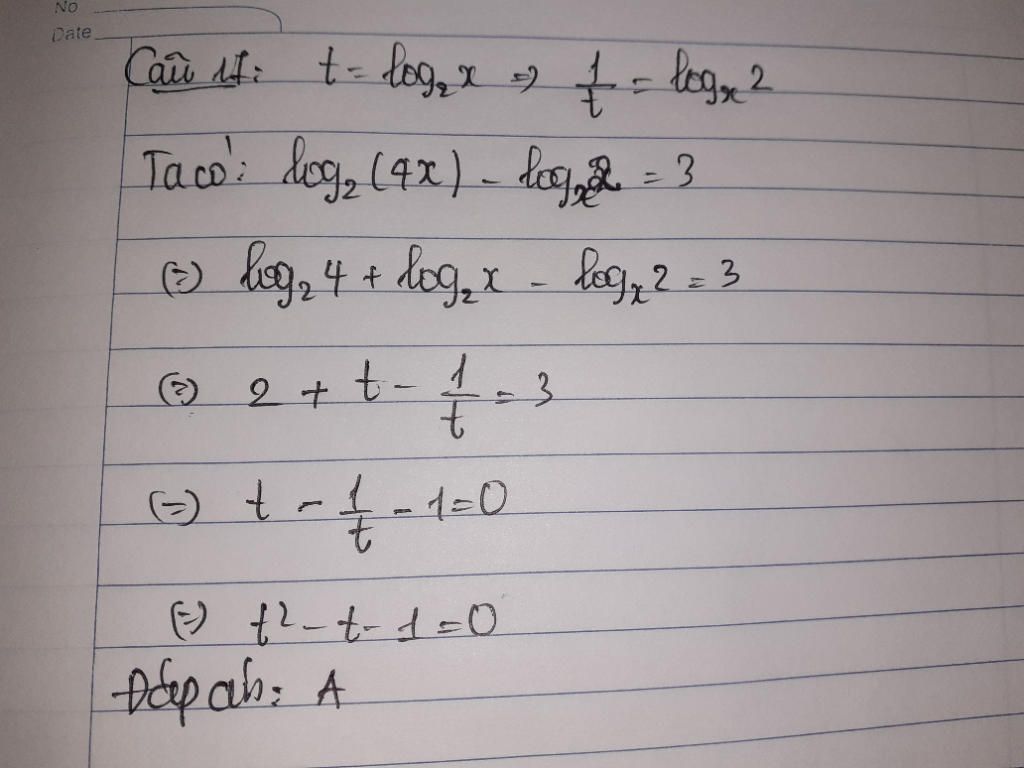 No
Date
Câu 17: t = log₂x => 1/t = logₓ2
Ta có: log₂(4x) - logₓ2 = 3
(=) log₂4 + log₂x - logₓ2 = 3
(=) 2 + t - 1/t = 3
(=) t - 1/t - 1 = 0
(=) t² - t - 1 = 0
Đáp án: A